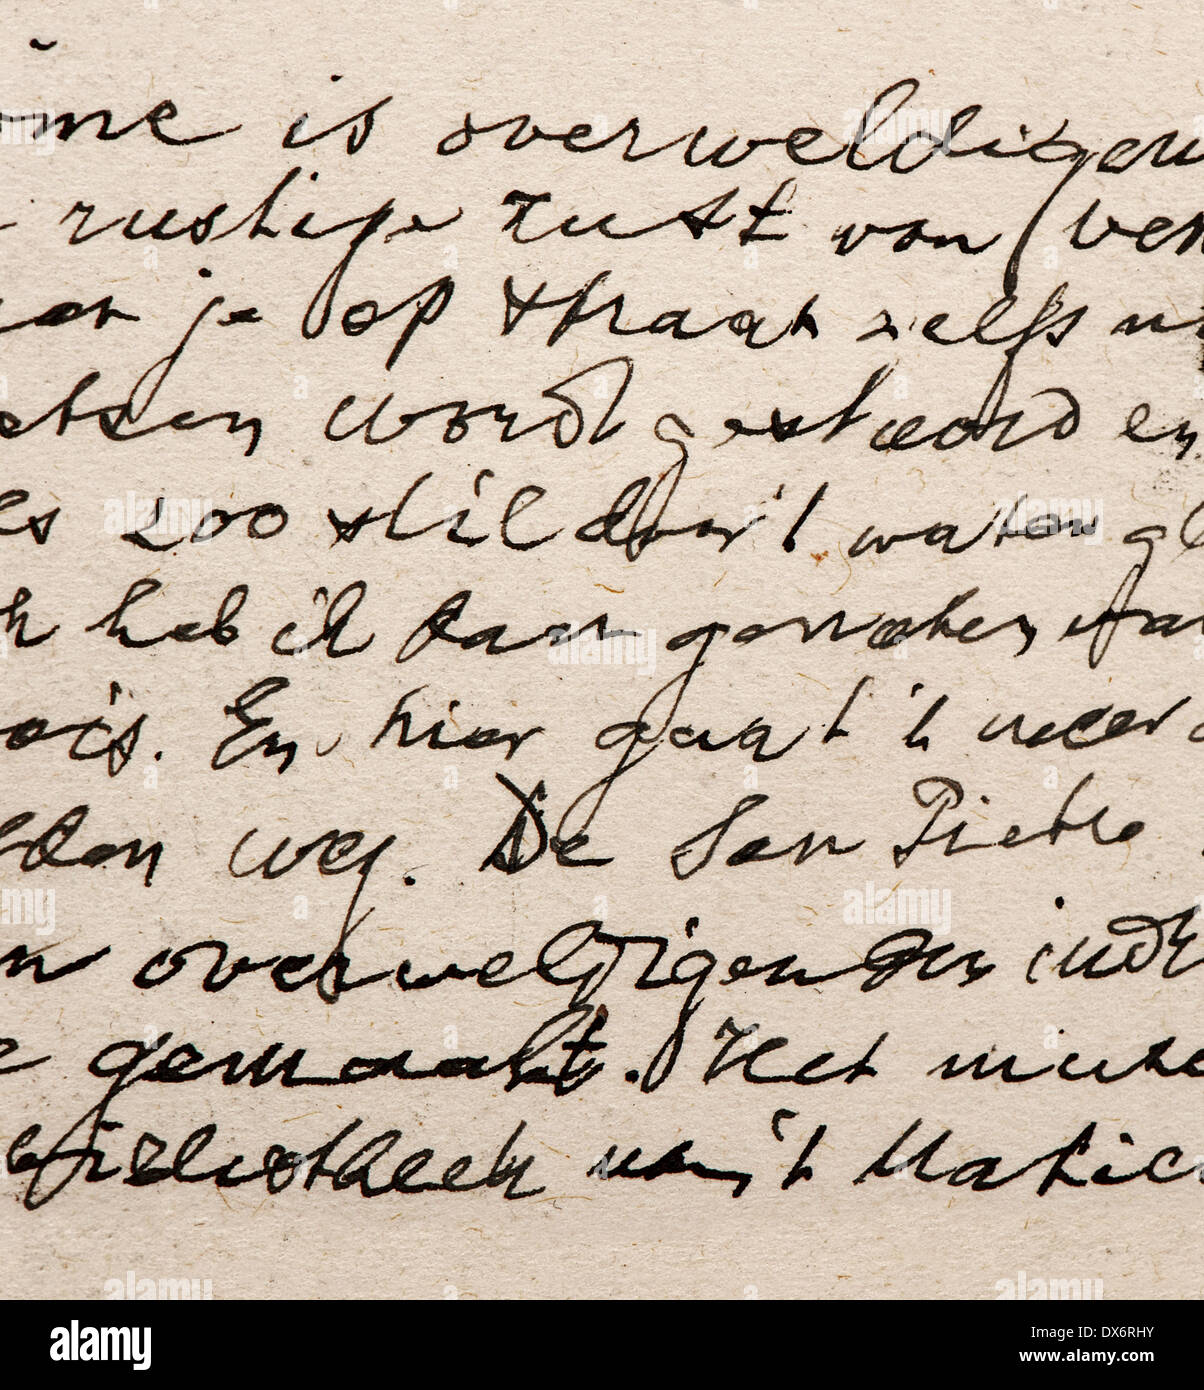 ome is overweldigen
rustige rust van ven
je op straat zelfs
etsen wordt gestoord en
es zoo stil door 't water gl
heb ik daar genoten
ois. En hier gaat 't weer
den weg. De San Pietro
n overweldigenden indr
e gemaakt. Het
bibliotheek van 't Vatica
alamy
Image ID: DX6RHY
www.alamy.com